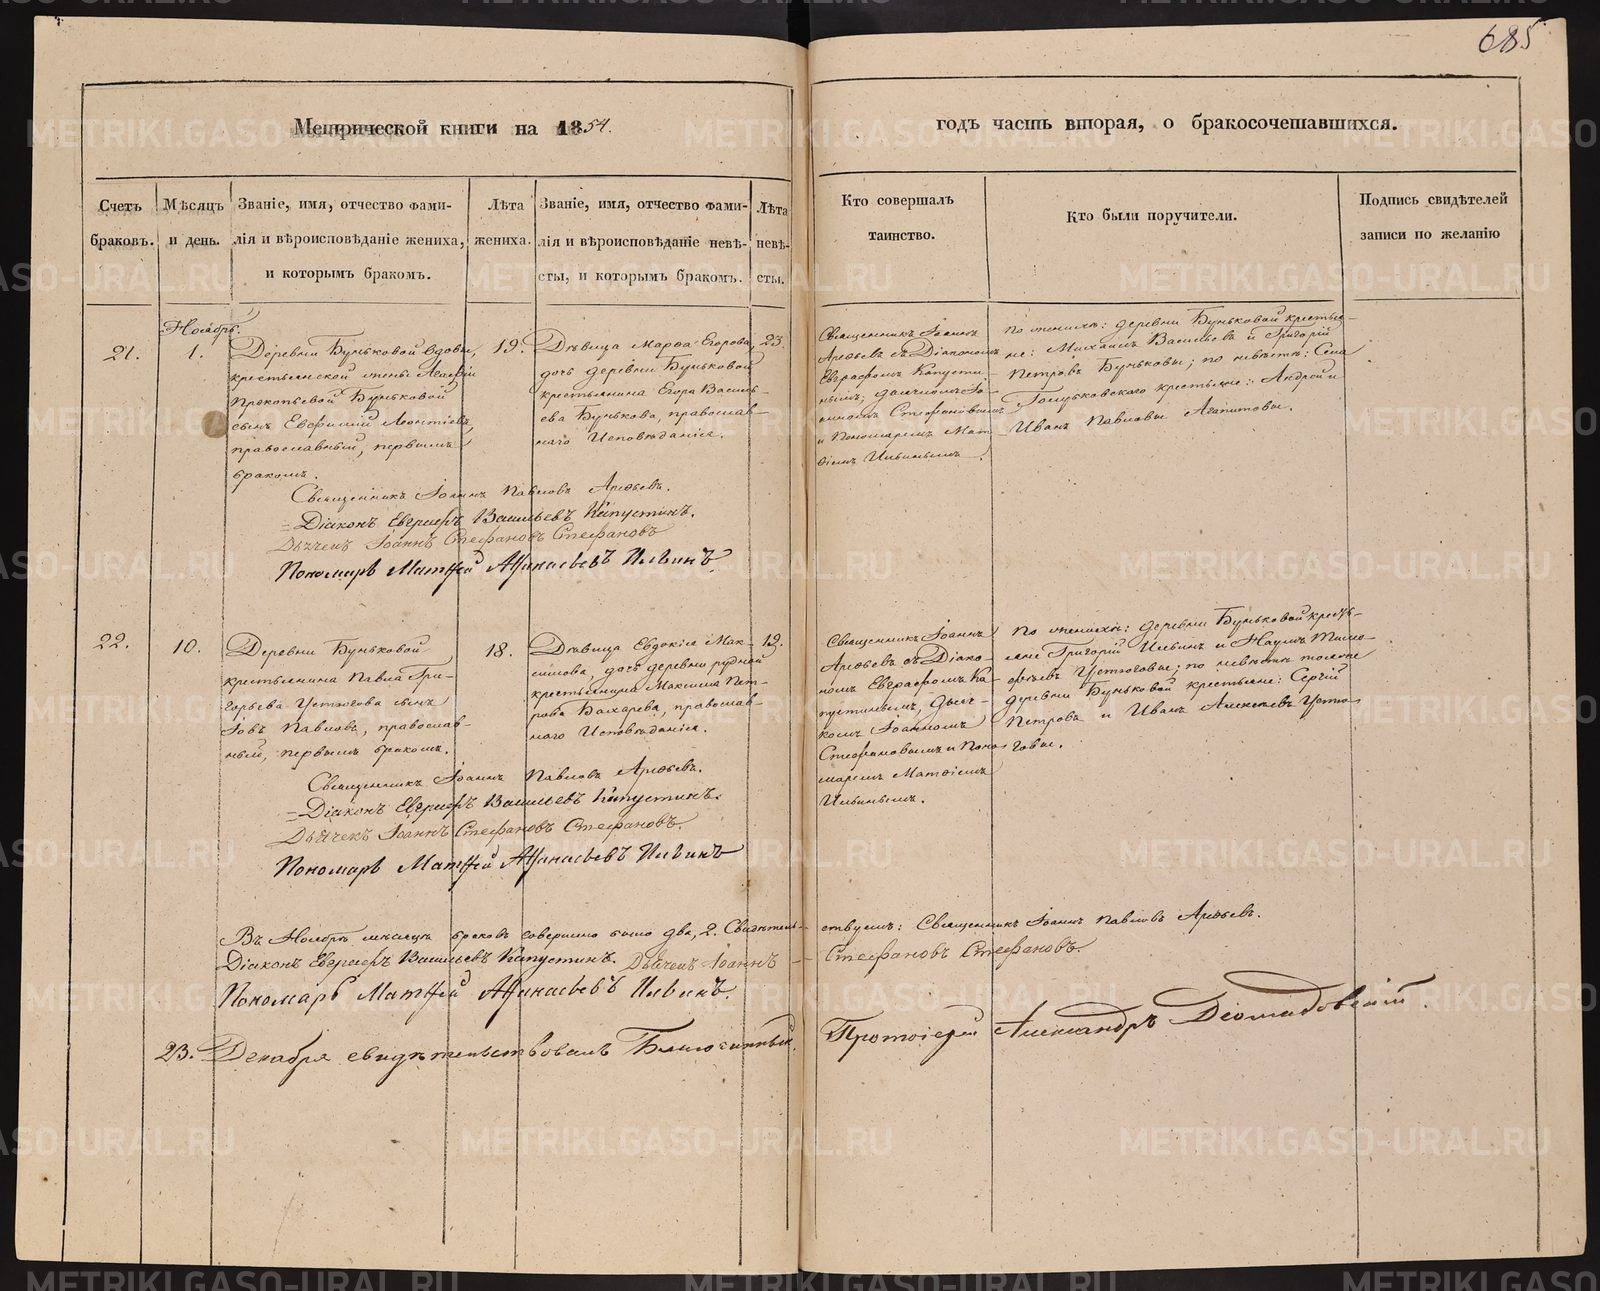 685
Метрической книги на 1854.
годъ часть вторая, о бракосочетавшихся.
Счетъ браковъ.
Мѣсяцъ и день.
Званіе, имя, отчество фами-
лія и вѣроисповѣданіе жениха,
и которымъ бракомъ.
Лѣта
жениха.
Званіе, имя, отчество фами-
лія и вѣроисповѣданіе невѣ-
сты, и которымъ бракомъ.
Лѣта
невѣ-
сты.
Кто совершалъ
таинство.
Кто были поручители.
Подпись свидѣтелей
записи по желанію
Ноябрь.
21.
1.
Деревни Буньковой вдовы,
крестьянской жены Агафіи
Прокопьевой Буньковой
сынъ Евфимій Леонтіевъ,
православный, первымъ
бракомъ.
19.
Дѣвица Марѳа Егорова,
дочь деревни Буньковой
крестьянина Егора Василь-
ева Бунькова, православ-
наго Исповѣданія.
23.
Священникъ Іоаннъ
Арефьевъ съ Діакономъ
Евграфомъ Капусти-
нымъ, дьячкомъ Іо-
анномъ Стефановымъ
и Пономаремъ Мат-
ѳіемъ Ильинымъ.
По женихѣ: деревни Буньковой крестья-
не: Михаилъ Васильевъ и Григорій
Петровъ Буньковы; по невѣстѣ: Села
крестьяне: Андрей и
Иванъ Павловы Агапитовы.
Священникъ Іоаннъ Павловъ Арефьевъ.
Діаконъ Евграфъ Васильевъ Капустинъ.
Дьячекъ Іоаннъ Стефановъ Стефановъ
Пономарь Матѳей Афанасьевъ Ильинъ.
22.
10.
Деревни Буньковой
крестьянина Павла Гри-
горьева Устюгова сынъ
Іовъ Павловъ, православ-
ный, первымъ бракомъ.
18.
Дѣвица Евдокія Мак-
симова, дочь деревни Рудной
крестьянина Максима Пет-
рова Бахарева, православ-
наго Исповѣданія.
19.
Священникъ Іоаннъ
Арефьевъ съ Діако-
номъ Евграфомъ Ка-
пустинымъ, дьяч-
комъ Іоанномъ
Стефановымъ и Поно-
маремъ Матѳіемъ
Ильинымъ.
По женихѣ: деревни Буньковой кресть-
яне Григорій Ильинъ и Наумъ Тимо-
фѣевъ Устюговы; по невѣстѣ тоже
деревни Буньковой крестьяне: Сергій
Петровъ и Иванъ Алексѣевъ Устю-
говы.
Священникъ Іоаннъ Павловъ Арефьевъ.
Діаконъ Евграфъ Васильевъ Капустинъ.
Дьячекъ Іоаннъ Стефановъ Стефановъ.
Пономарь Матѳей Афанасьевъ Ильинъ
Въ Ноябрѣ мѣсяцѣ браковъ совершено было два, 2. Свидѣтель-
ствуемъ: Священникъ Іоаннъ Павловъ Арефьевъ.
Діаконъ Евграфъ Васильевъ Капустинъ. Дьячекъ Іоаннъ
Стефановъ Стефановъ.
Пономарь Матѳей Афанасьевъ Ильинъ.
23. Декабря свидѣтельствовалъ Благочинный,
Протоіерей Александръ Діомидовскій.
METRIKI.GASO-URAL.RU